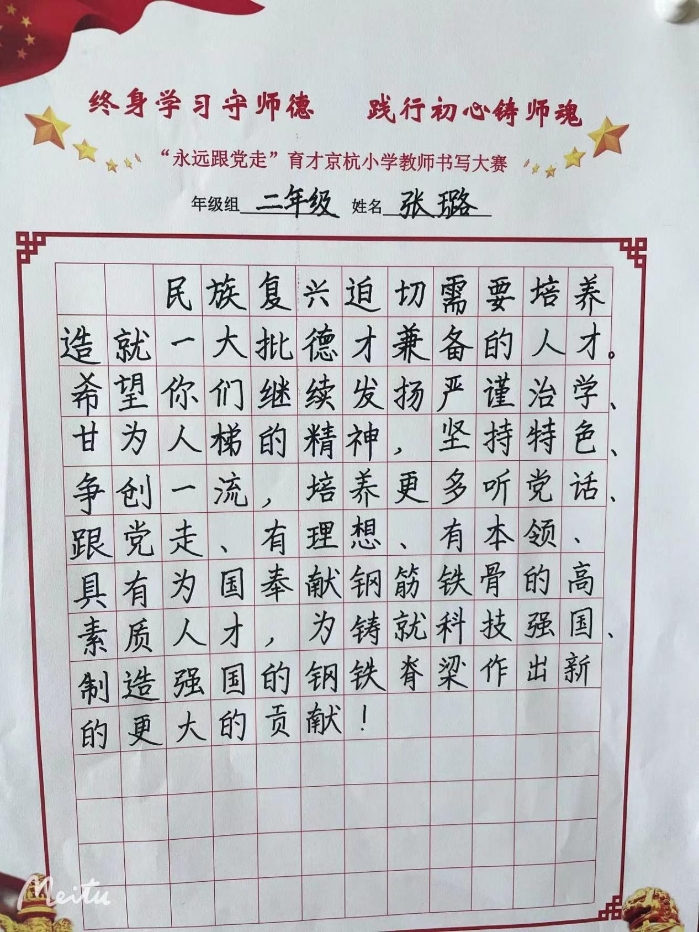 终身学习守师德 践行初心铸师魂
“永远跟党走”育才京杭小学教师书写大赛
年级组 二年级 姓名 张璐
民族复兴迫切需要培养
造就一大批德才兼备的人才。
希望你们继续发扬严谨治学、
甘为人梯的精神，坚持特色、
争创一流，培养更多听党话、
跟党走、有理想、有本领、
具有为国奉献钢筋铁骨的高
素质人才，为铸就科技强国、
制造强国的钢铁脊梁作出新
的更大的贡献！
Meitu